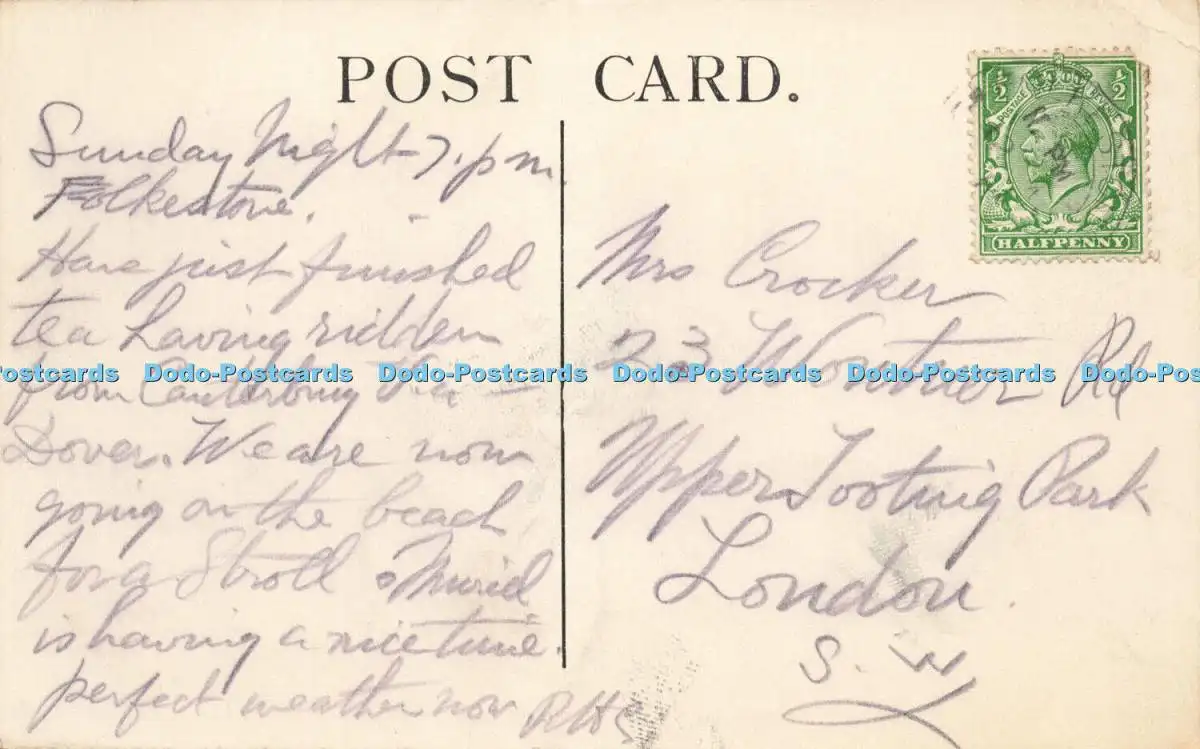 POST CARD.
Sunday Night 7. pm.
Folkestone.
Have just finished
tea having ridden
from Canterbury via
Dover. We are now
going on the beach
for a Stroll & Muriel
is having a nice time.
perfect weather now
Mrs Crocker
23 Wortner Rd
Upper Tooting Park
London.
S. W
½ ½
POSTAGE REVENUE
PM
HALFPENNY
Dodo-Postcards Dodo-Postcards Dodo-Postcards Dodo-Postcards